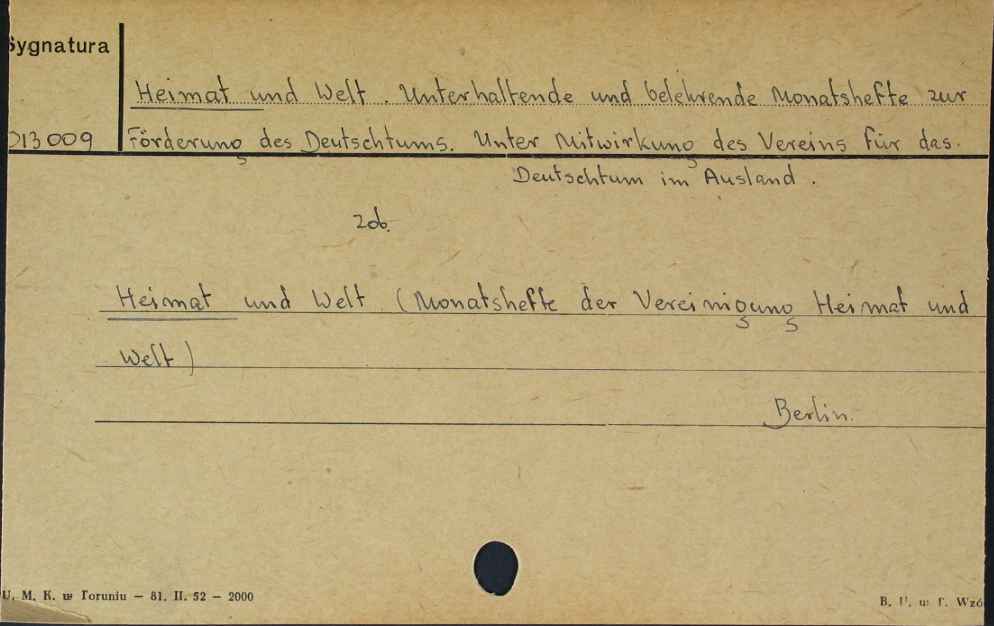 Sygnatura
Heimat und Welt. Unterhaltende und belehrende Monatshefte zur
013009 Förderung des Deutschtums. Unter Mitwirkung des Vereins für das.
Deutschtum im Ausland.
zob.
Heimat und Welt (Monatshefte der Vereinigung Heimat und
Welt)
Berlin.
U. M. K. w Toruniu — 81. II. 52 — 2000
B. U. w T. Wzó